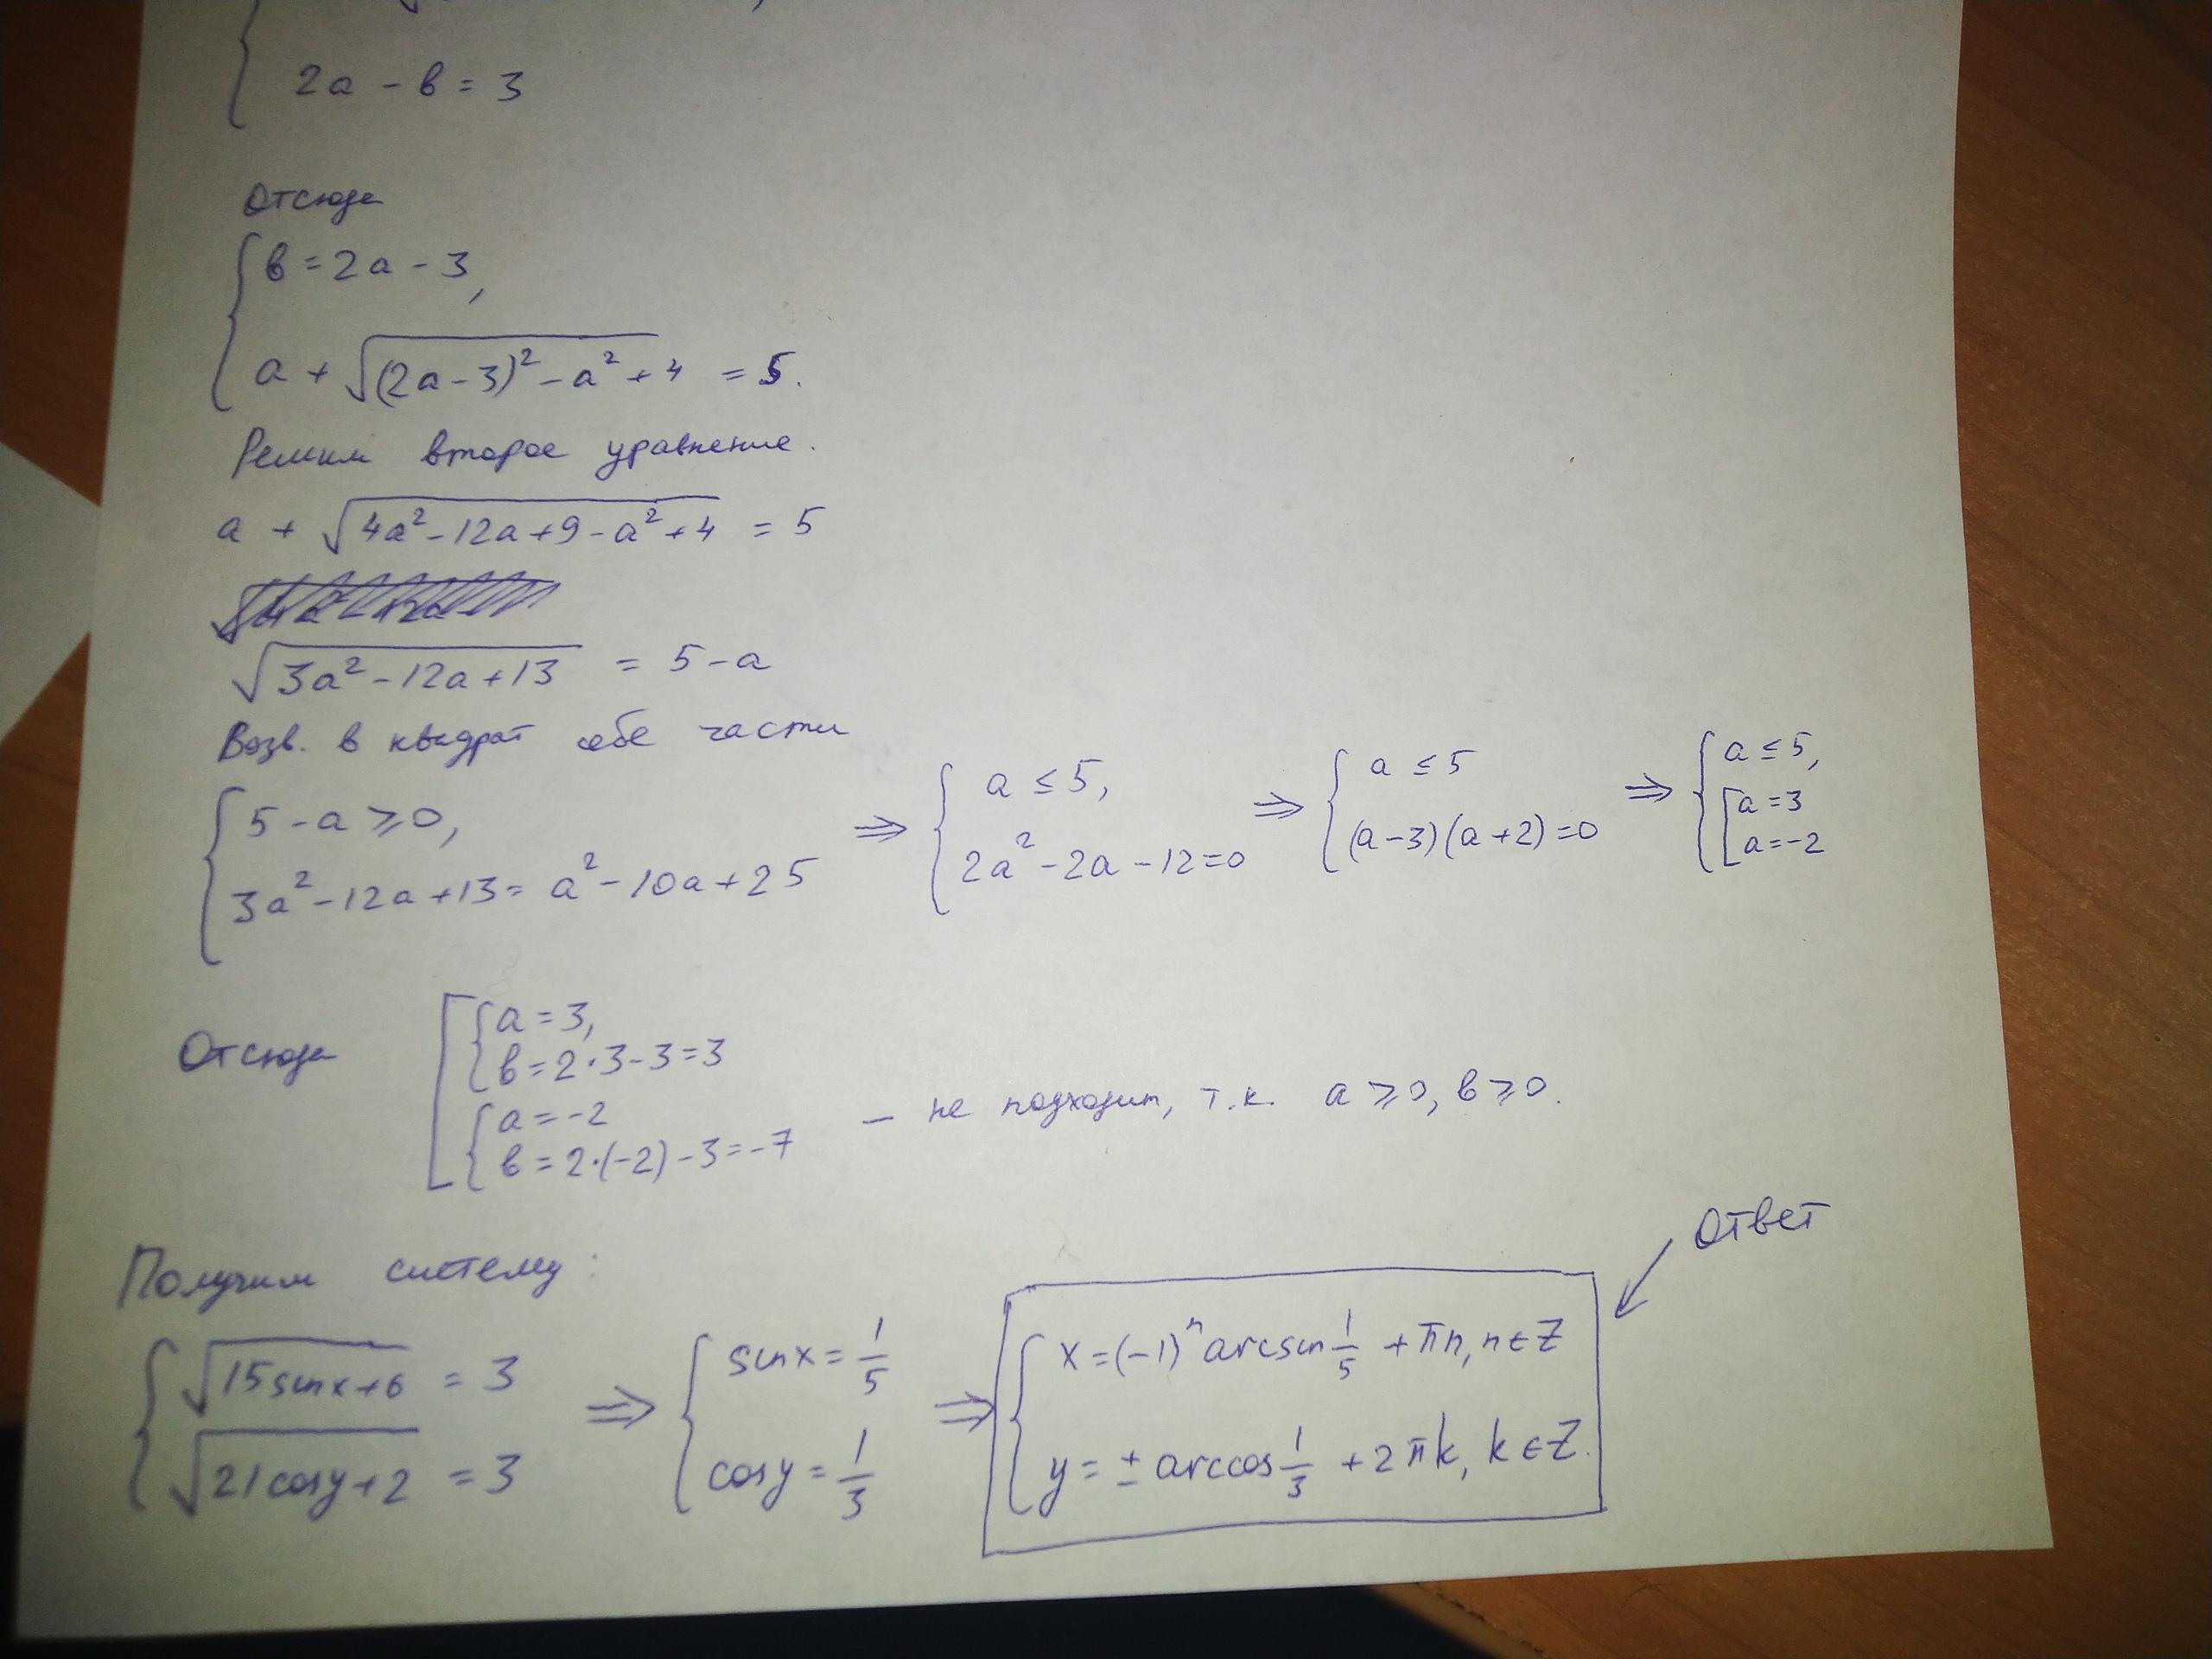 2a - b = 3
Отсюда
b = 2a - 3,
a + √(2a-3)² - a² + 4 = 5.
Решим второе уравнение.
a + √4a² - 12a + 9 - a² + 4 = 5
√3a² - 12a + 13 = 5 - a
Возв. в квадрат обе части
{ 5 - a ⩾ 0, 3a² - 12a + 13 = a² - 10a + 25 ⇒ { a ≤ 5, 2a² - 2a - 12 = 0 ⇒ { a ≤ 5 (a-3)(a+2) = 0 ⇒ { a ≤ 5, [ a = 3 a = -2
Отсюда
[ { a = 3,
b = 2·3 - 3 = 3
{ a = -2
b = 2·(-2) - 3 = -7 — не подходит, т.к. a ⩾ 0, b ⩾ 0.
Получим систему:
Ответ
{ √15sinx+6 = 3 ⇒ { sinx = 1/5 ⇒ { x = (-1)ⁿ arcsin 1/5 + πn, n ∈ Z
√21cosy+2 = 3 cosy = 1/3 y = ± arccos 1/3 + 2πk, k ∈ Z.